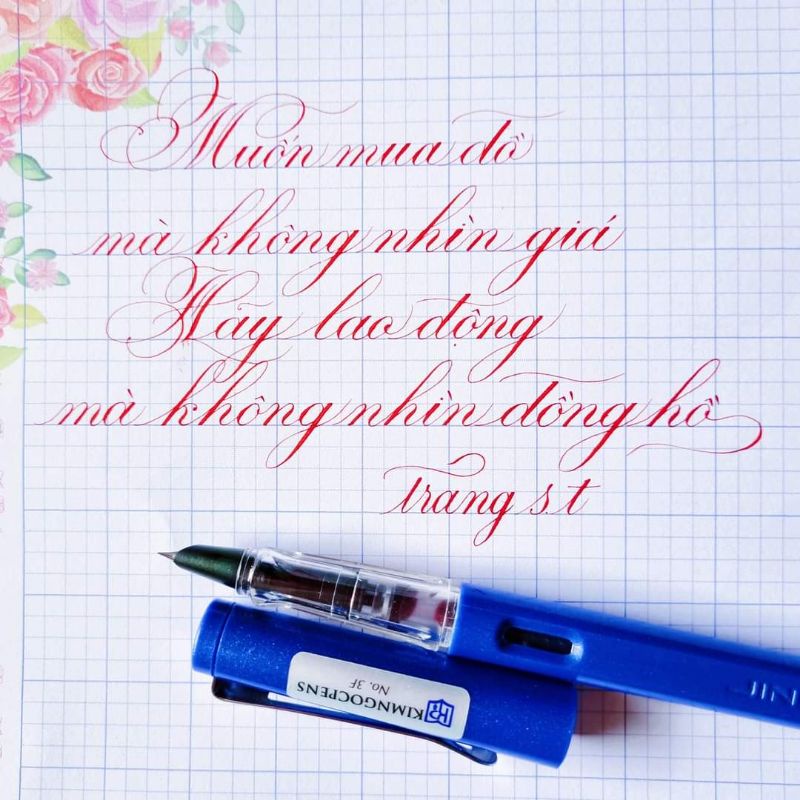 Muốn mua đồ
mà không nhìn giá
Hãy lao động
mà không nhìn đồng hồ
trang s.t
KIMNGOCPENS
No. 3F